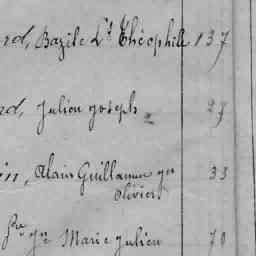 rd, Bazile Lt Théophile 137
rd, Julien Joseph 27
in, Alain Guillaume yer
Olivier 33
yer Marie Julien 70